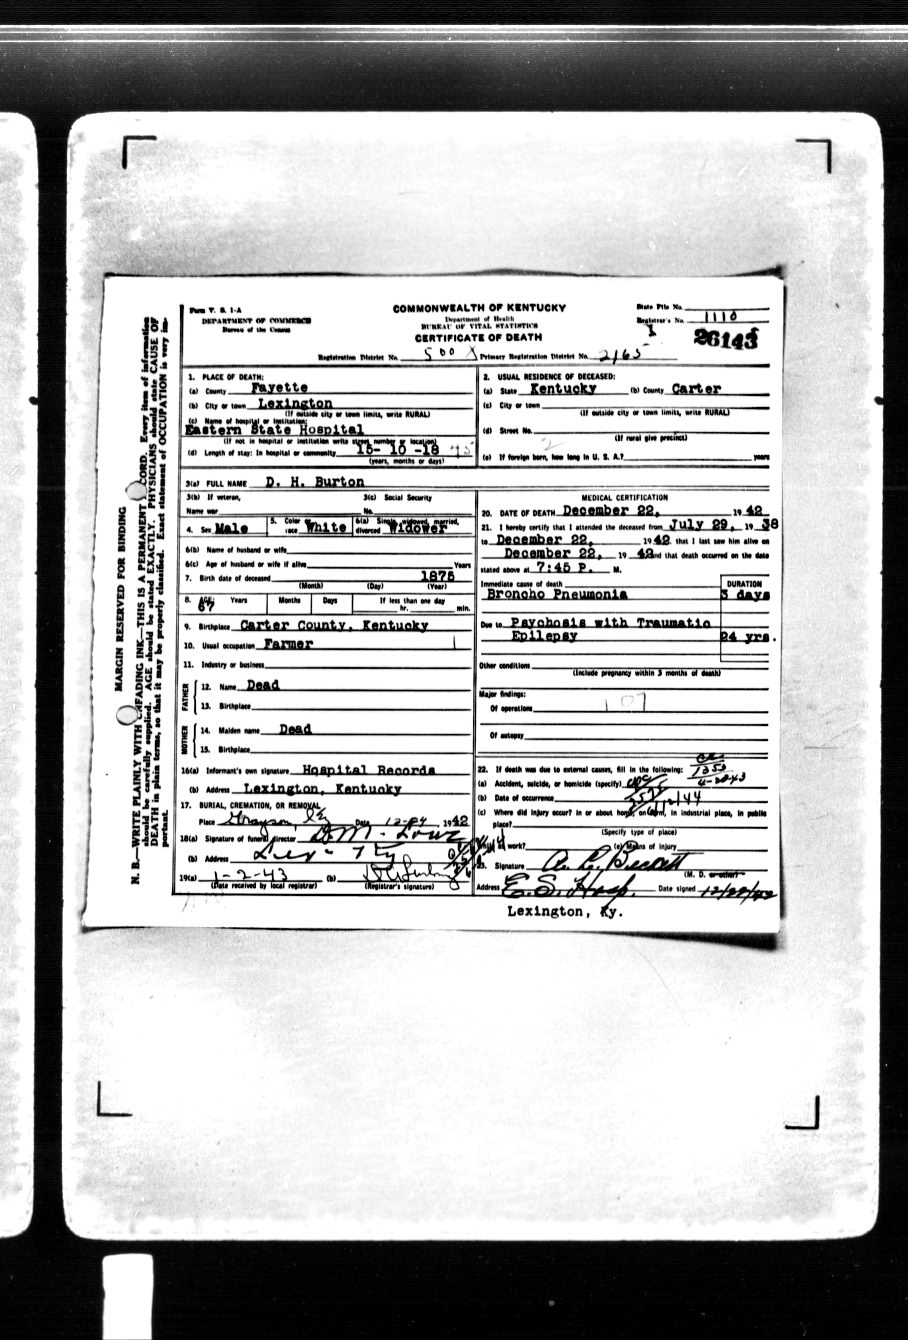 Form V. S. 1-A
DEPARTMENT OF COMMERCE
Bureau of the Census
COMMONWEALTH OF KENTUCKY
Department of Health
BUREAU OF VITAL STATISTICS
CERTIFICATE OF DEATH
State File No.
Registrar's No. 1110
26143
Registration District No. 500 X Primary Registration District No. 2165
MARGIN RESERVED FOR BINDING
N. B.—WRITE PLAINLY WITH UNFADING INK—THIS IS A PERMANENT RECORD. Every item of information
should be carefully supplied. AGE should be stated EXACTLY. PHYSICIANS should state CAUSE OF
DEATH in plain terms, so that it may be properly classified. Exact statement of OCCUPATION is very im-
portant.
1. PLACE OF DEATH:
(a) County Fayette
(b) City or town Lexington
(If outside city or town limits, write RURAL)
(c) Name of hospital or institution:
Eastern State Hospital
(If not in hospital or institution write street number or location)
(d) Length of stay: In hospital or community 15-10-18
(years, months or days)
2. USUAL RESIDENCE OF DECEASED:
(a) State Kentucky (b) County Carter
(c) City or town
(If outside city or town limits, write RURAL)
(d) Street No.
(If rural give precinct)
(e) If foreign born, how long in U. S. A.? years
3(a) FULL NAME D. H. Burton
3(b) If veteran, 3(c) Social Security
Name war No.
4. Sex Male 5. Color or race White 6(a) Single, widowed, married, divorced Widower
6(b) Name of husband or wife
6(c) Age of husband or wife if alive Years
7. Birth date of deceased 1875
(Month) (Day) (Year)
8. AGE: Years Months Days If less than one day
67 hr. min.
9. Birthplace Carter County, Kentucky
10. Usual occupation Farmer
11. Industry or business
FATHER
12. Name Dead
13. Birthplace
MOTHER
14. Maiden name Dead
15. Birthplace
16(a) Informant's own signature Hospital Records
(b) Address Lexington, Kentucky
17. BURIAL, CREMATION, OR REMOVAL
Place Grayson, Ky Date 12-24 1942
18(a) Signature of funeral director D. M. Lowe
(b) Address Lex - Ky
19(a) 1-2-43 (b)
(Date received by local registrar) (Registrar's signature)
MEDICAL CERTIFICATION
20. DATE OF DEATH December 22, 1942
21. I hereby certify that I attended the deceased from July 29, 1938
to December 22, 1942 that I last saw him alive on
December 22, 1942 and that death occurred on the date
stated above at 7:45 P. M.
Immediate cause of death DURATION
Broncho Pneumonia 3 days
Due to Psychosis with Traumatic
Epilepsy 24 yrs.
Other conditions
(Include pregnancy within 3 months of death)
Major findings:
Of operations 107
Of autopsy
22. If death was due to external causes, fill in the following:
(a) Accident, suicide, or homicide (specify)
(b) Date of occurrence
(c) Where did injury occur? In or about home, on farm, in industrial place, in public
place?
(Specify type of place)
While at work? (e) Means of injury
23. Signature
(M. D. or other)
Address E. S. Hosp. Date signed 12/22/42
Lexington, Ky.